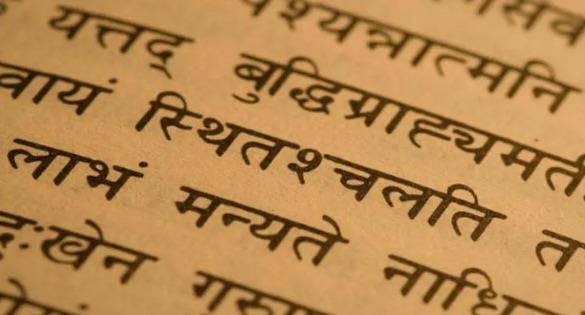 पश्यन्नात्मनि
यत्तद् बुद्धिग्राह्यमती
वायं स्थितश्चलति त
लाभं मन्यते नाधि
दुःखेन गुरु